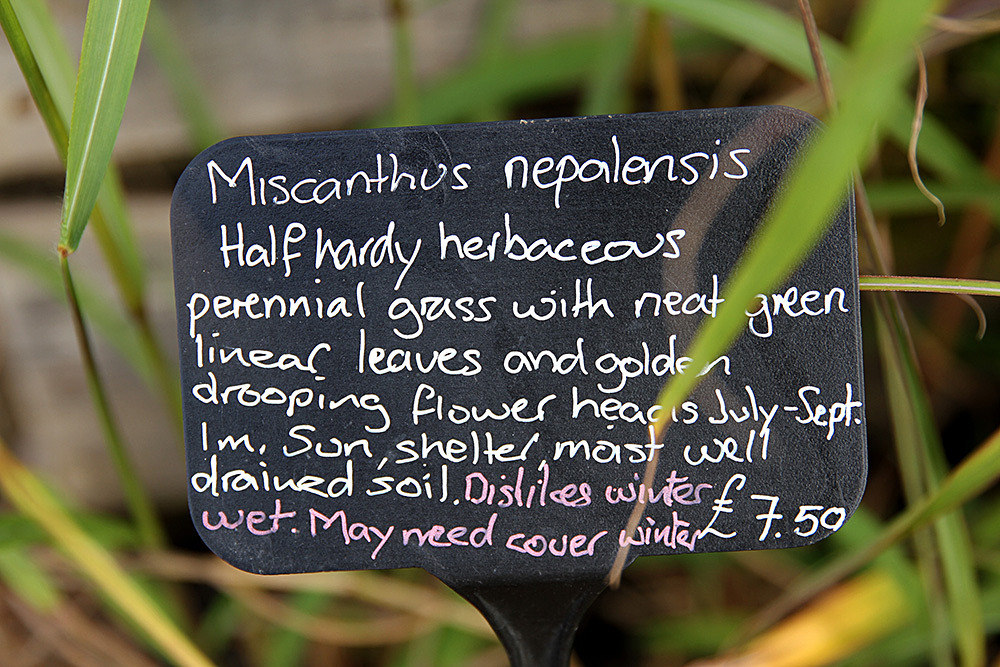 Miscanthus nepalensis
Half hardy herbaceous
perennial grass with neat green
linear leaves and golden
drooping flower heads July-Sept.
1m. Sun, shelter, moist well
drained soil. Dislikes winter
wet. May need cover winter £7.50